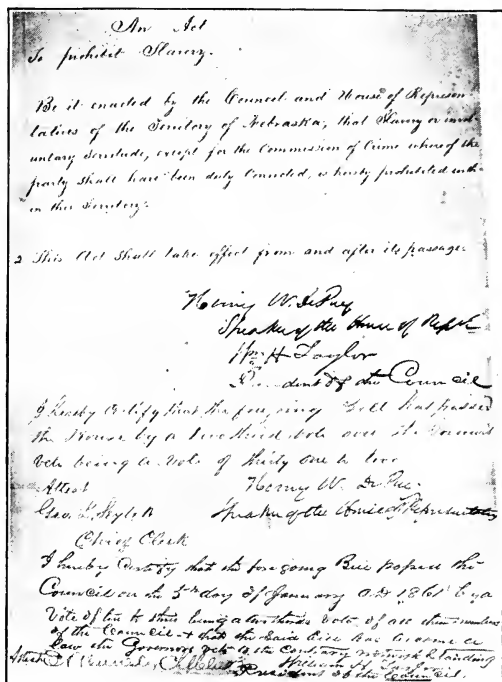 An Act
To prohibit Slavery.
Be it enacted by the Council and House of Represen
tatives of the Territory of Nebraska, that Slavery or invol
untary Servitude, except for the Commission of Crime whereof the
party Shall have been duly Convicted, is hereby prohibited with
in this Territory.
2 This Act Shall take effect from and after its passage.
Henry W. DePuy
Speaker of the House of Rep
Wm H Taylor
President of the Council
I hereby Certify that the foregoing Bill has passed
the House by a two third vote over the Governors
veto being a vote of thirty one to two
Attest
Henry W. DePuy
Geo. L.
Speaker of the House of Representatives
Chief Clerk
I hereby Certify that the foregoing Bill passed the
Council on the 5th day of January A.D 1861 by a
Vote of ten to three being a two thirds vote, of all the members
of the Council & that the Said Bill has become a
law the Governors veto to the Contrary notwithstanding
Attest
William H Taylor
President of the Council